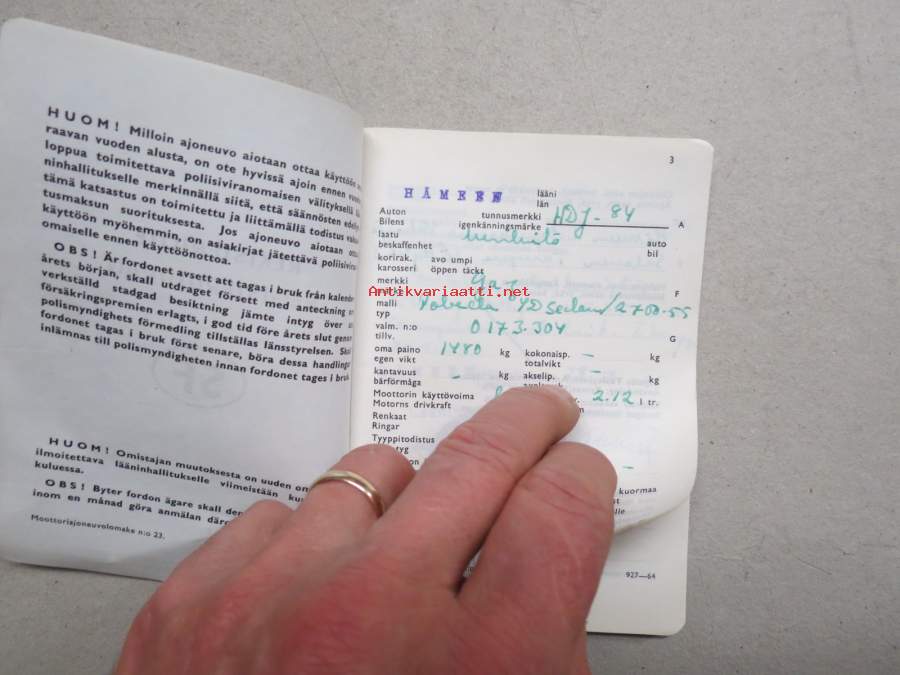 HUOM! Milloin ajoneuvo aiotaan ottaa käyttöön
raavan vuoden alusta, on ote hyvissä ajoin ennen
loppua toimitettava poliisiviranomaisen välityksellä
ninhallitukselle merkinnällä siitä, että säännösten
tämä katsastus on toimitettu ja liittämällä todistus
tusmaksun suorituksesta. Jos ajoneuvo aiotaan
käyttöön myöhemmin, on asiakirjat jätettävä poliisivira
omaiselle ennen käyttöönottoa.
OBS! Är fordonet avsett att tagas i bruk från kalender
årets början, skall utdraget försett med anteckning
verkställd stadgad besiktning jämte intyg över
försäkringspremien erlagts, i god tid före årets slut genom
polismyndighets förmedling tillställas länsstyrelsen. Skall
fordonet tagas i bruk först senare, böra dessa handlingar
inlämnas till polismyndigheten innan fordonet tages i bruk
HUOM! Omistajan muutoksesta on uuden
ilmoitettava lääninhallitukselle viimeistään
kuluessa.
OBS! Byter fordon ägare skall
inom en månad göra anmälan
Moottoriajoneuvolomake n:o 23.
3
HÄMEEN lääni
län
Auton tunnusmerkki HDJ-84 A
Bilens igenkänningsmärke
laatu auto
beskaffenhet bil
korirak. avo umpi
karosseri öppen täckt
merkki Gaz F
märke
Antikvariaatti.net
malli Pobeda 4D Sedan/2700-55
typ
valm. n:o 0173.304 G
tillv.
oma paino 1480 kg kokonaisp. – kg
egen vikt totalvikt
kantavuus – kg akselip. – kg
bärförmåga
Moottorin käyttövoima 2.12 l tr.
Motorns drivkraft
Renkaat
Ringar
Tyyppitodistus
–
kuormaa
927—64